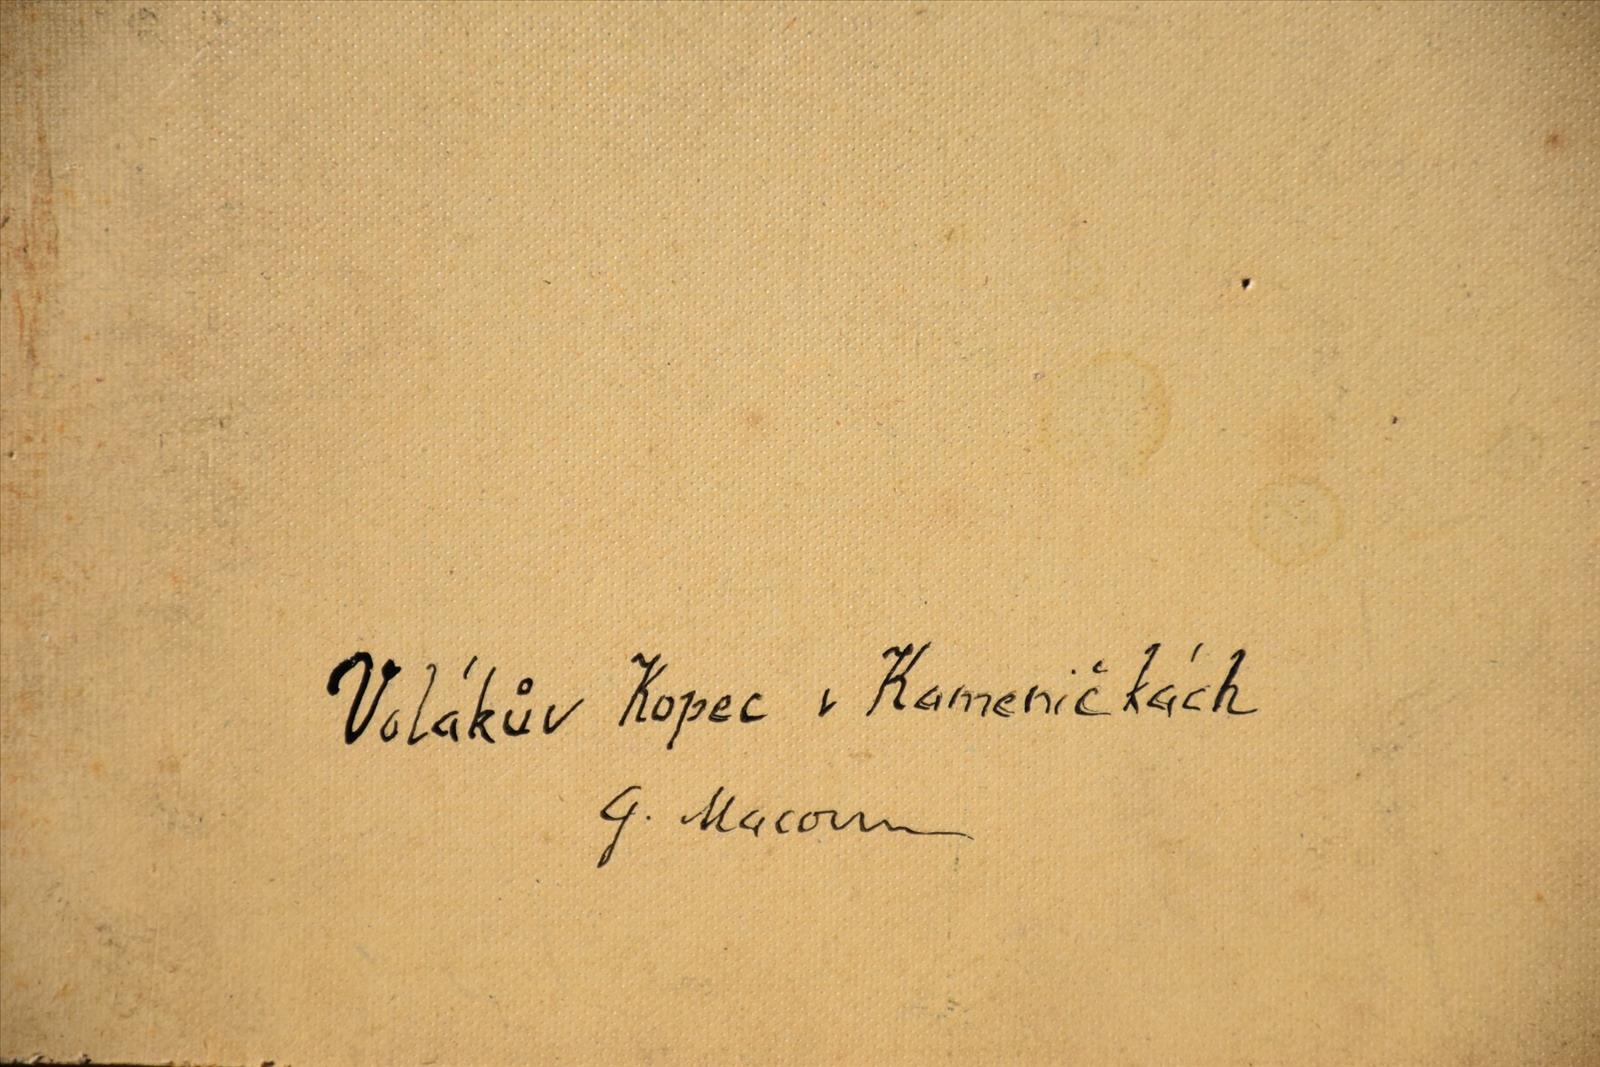 Volákův Kopec v Kameničkách
G. Macoun